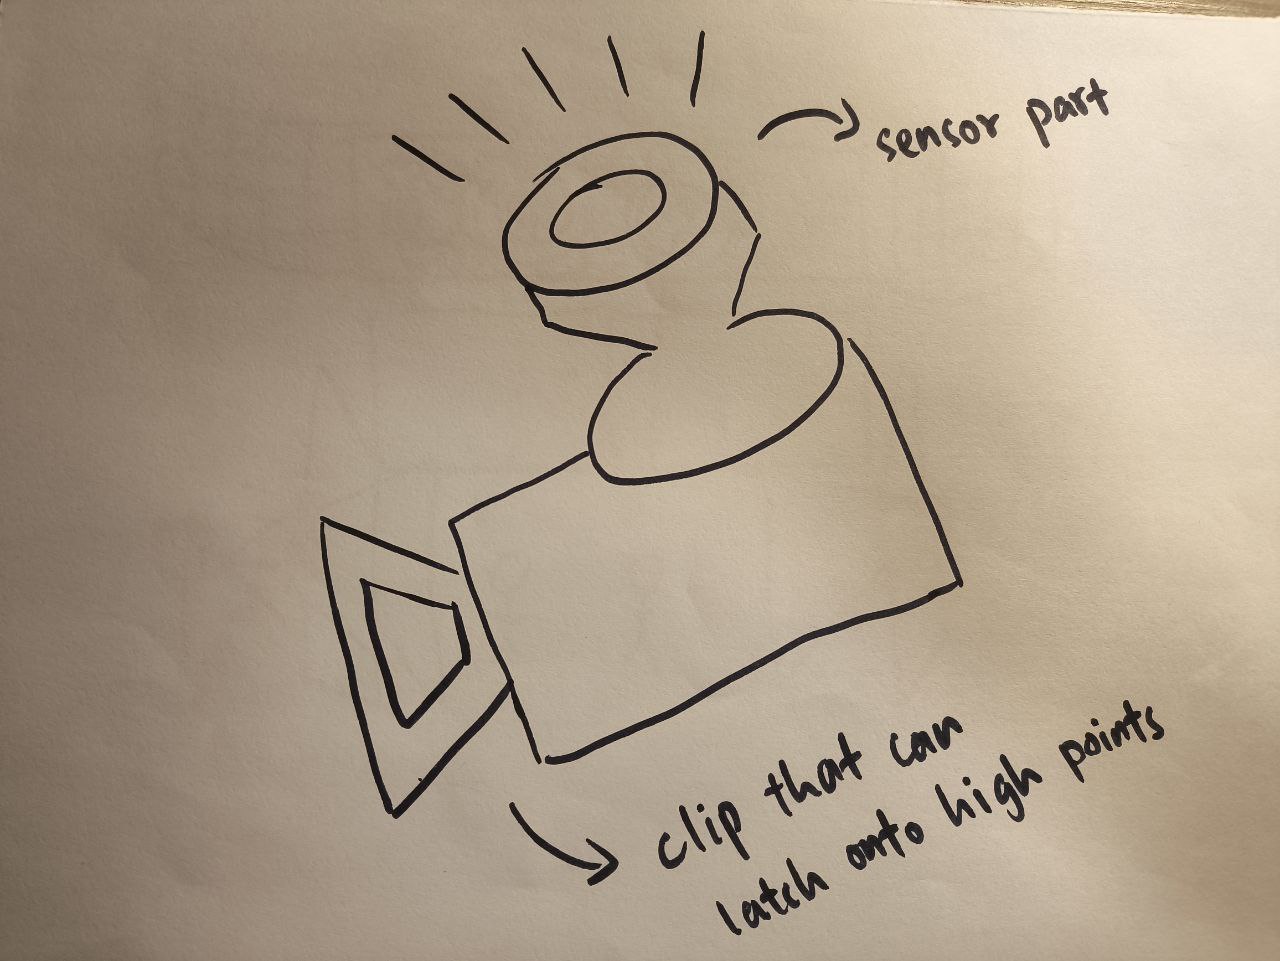 sensor part
clip that can
latch onto high points